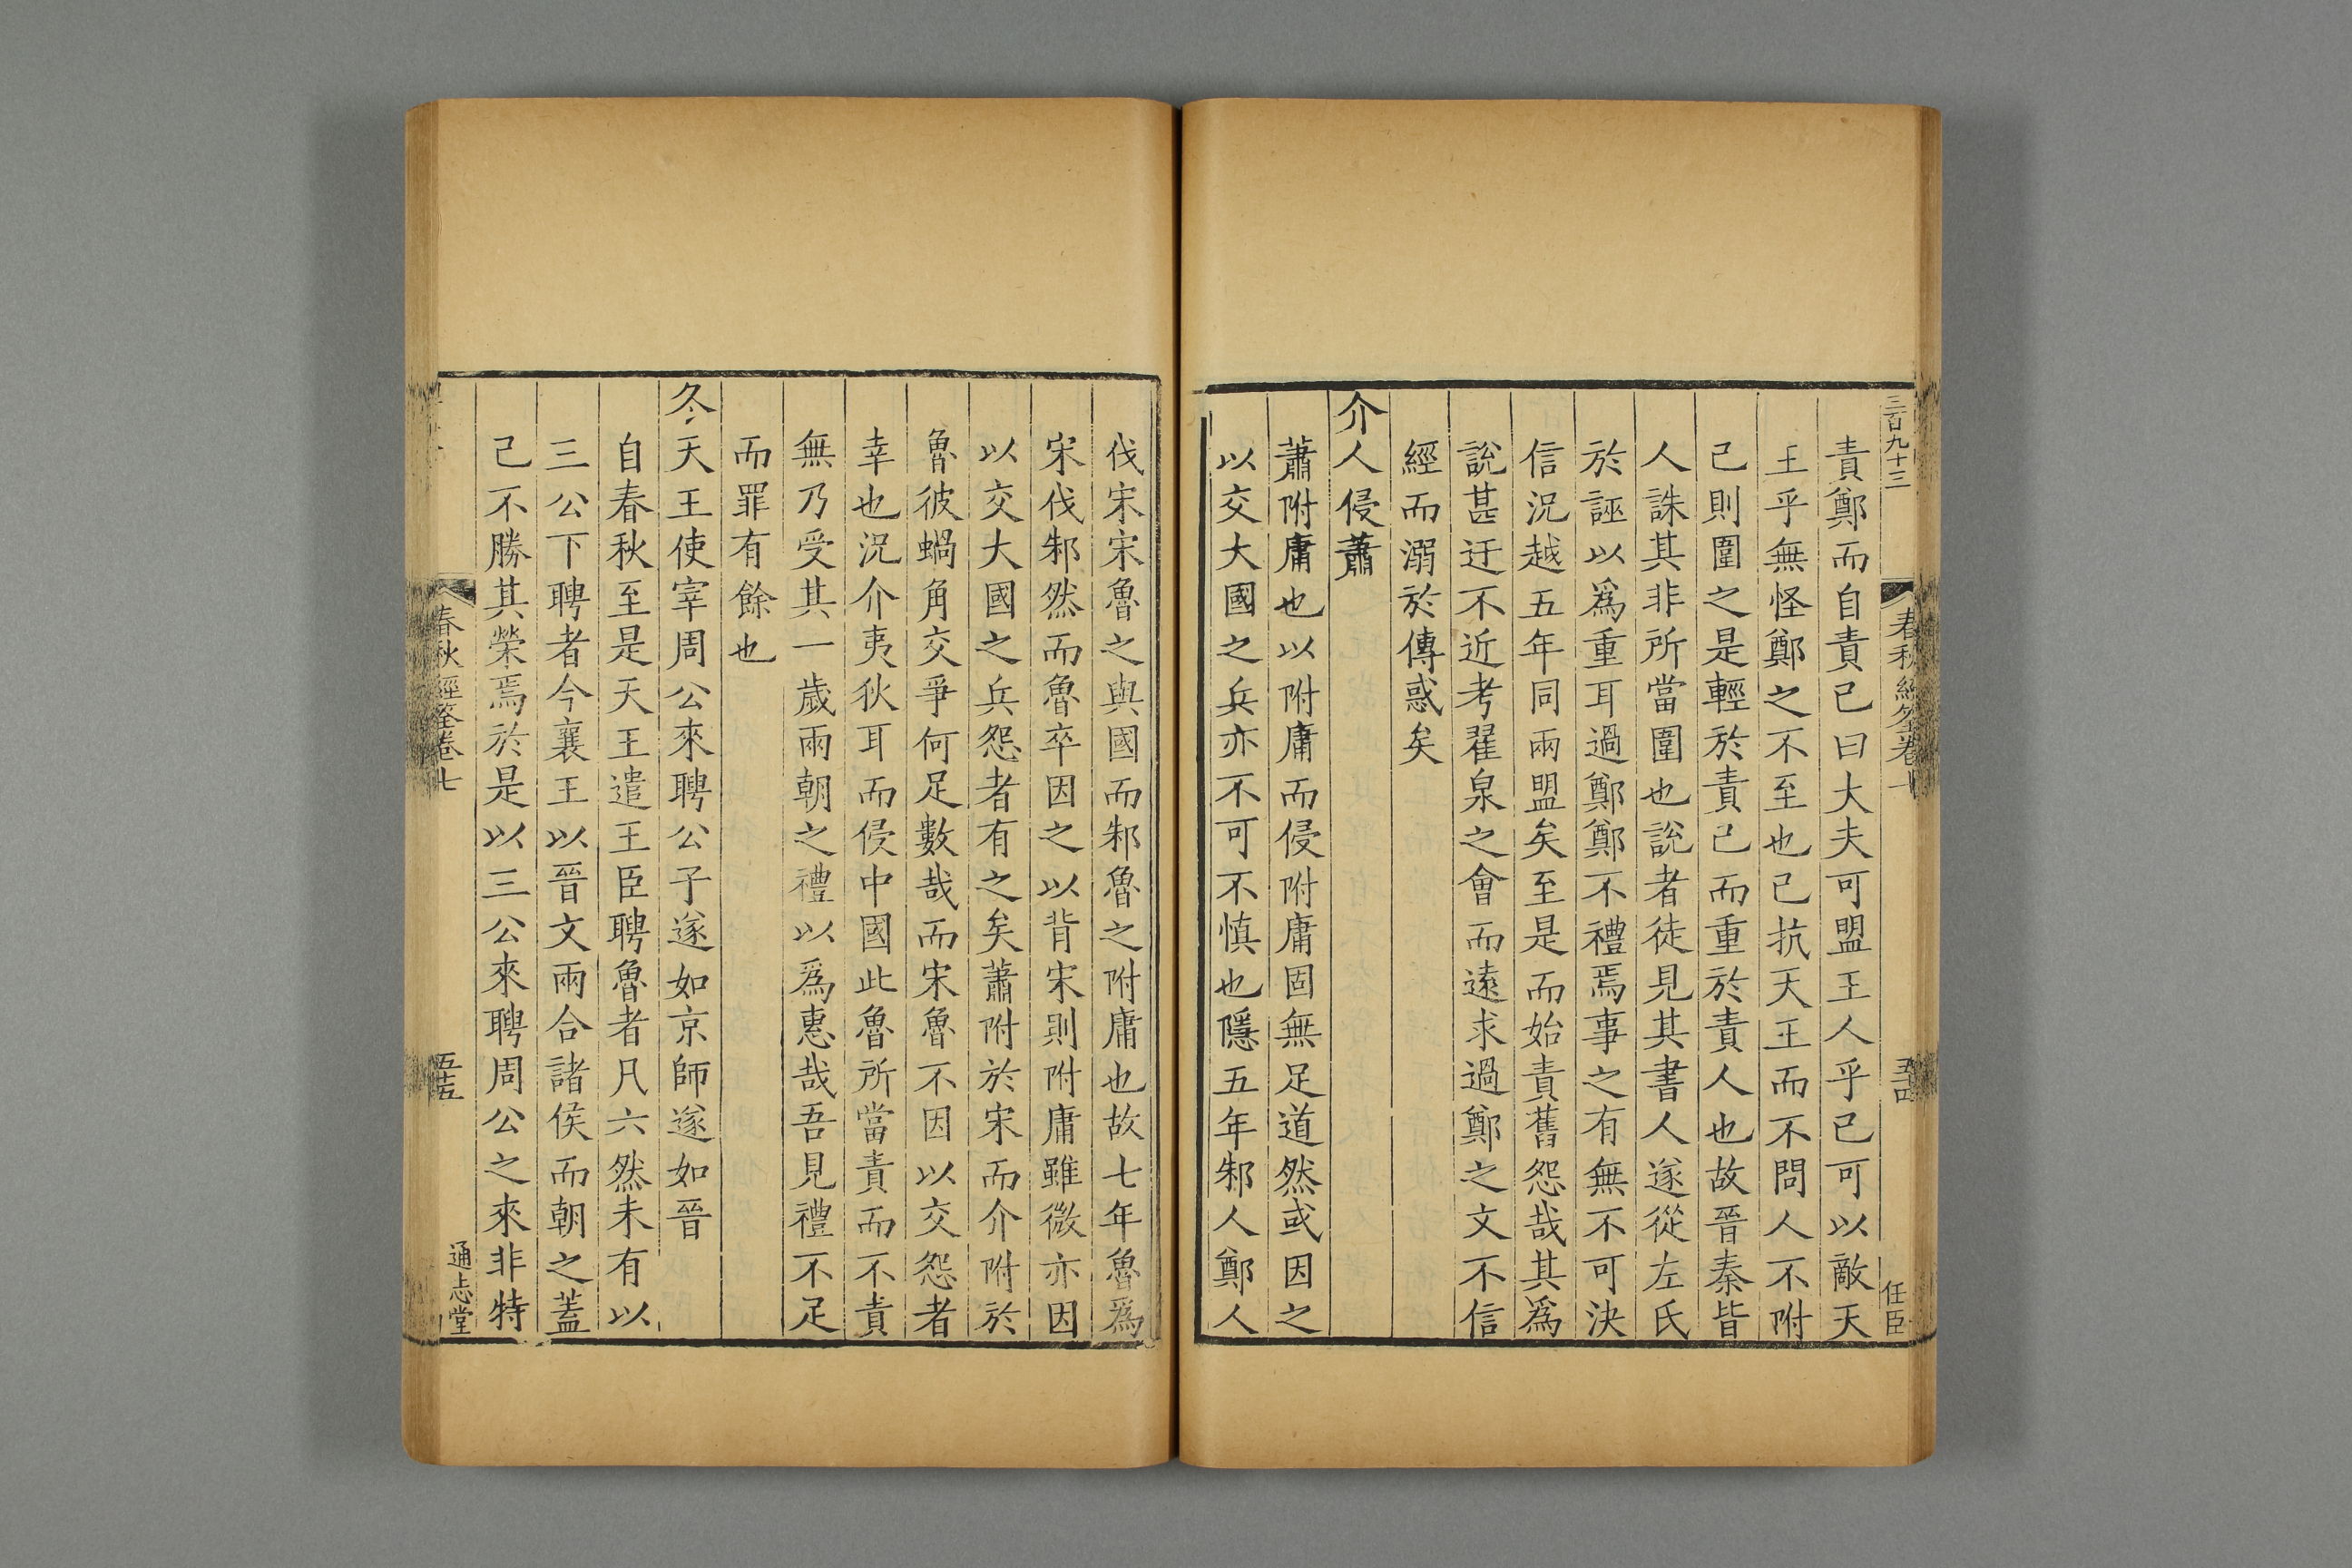 三百九十三
春秋經筌卷七
五十四
任臣
責鄭而自責已曰大夫可盟王人乎已可以敵天
王乎無怪鄭之不至也已抗天王而不問人不附
已則圍之是輕於責已而重於責人也故晉秦皆
人誅其非所當圍也說者徒見其書人遂從左氏
於誣以爲重耳過鄭鄭不禮焉事之有無不可決
信況越五年同兩盟矣至是而始責舊怨哉其爲
說甚迂不近考翟泉之會而遠求過鄭之文不信
經而溺於傳惑矣
介人侵蕭
蕭附庸也以附庸而侵附庸固無足道然或因之
以交大國之兵亦不可不慎也隱五年邾人鄭人
伐宋宋魯之與國而邾魯之附庸也故七年魯爲
宋伐邾然而魯卒因之以背宋則附庸雖微亦因
以交大國之兵怨者有之矣蕭附於宋而介附於
魯彼蝸角交爭何足數哉而宋魯不因以交怨者
幸也況介夷狄耳而侵中國此魯所當責而不責
無乃受其一歲兩朝之禮以爲惠哉吾見禮不足
而罪有餘也
冬天王使宰周公來聘公子遂如京師遂如晉
自春秋至是天王遣王臣聘魯者凡六然未有以
三公下聘者今襄王以晉文兩合諸侯而朝之蓋
己不勝其榮焉於是以三公來聘周公之來非特
春秋經筌卷七
五十五
通志堂